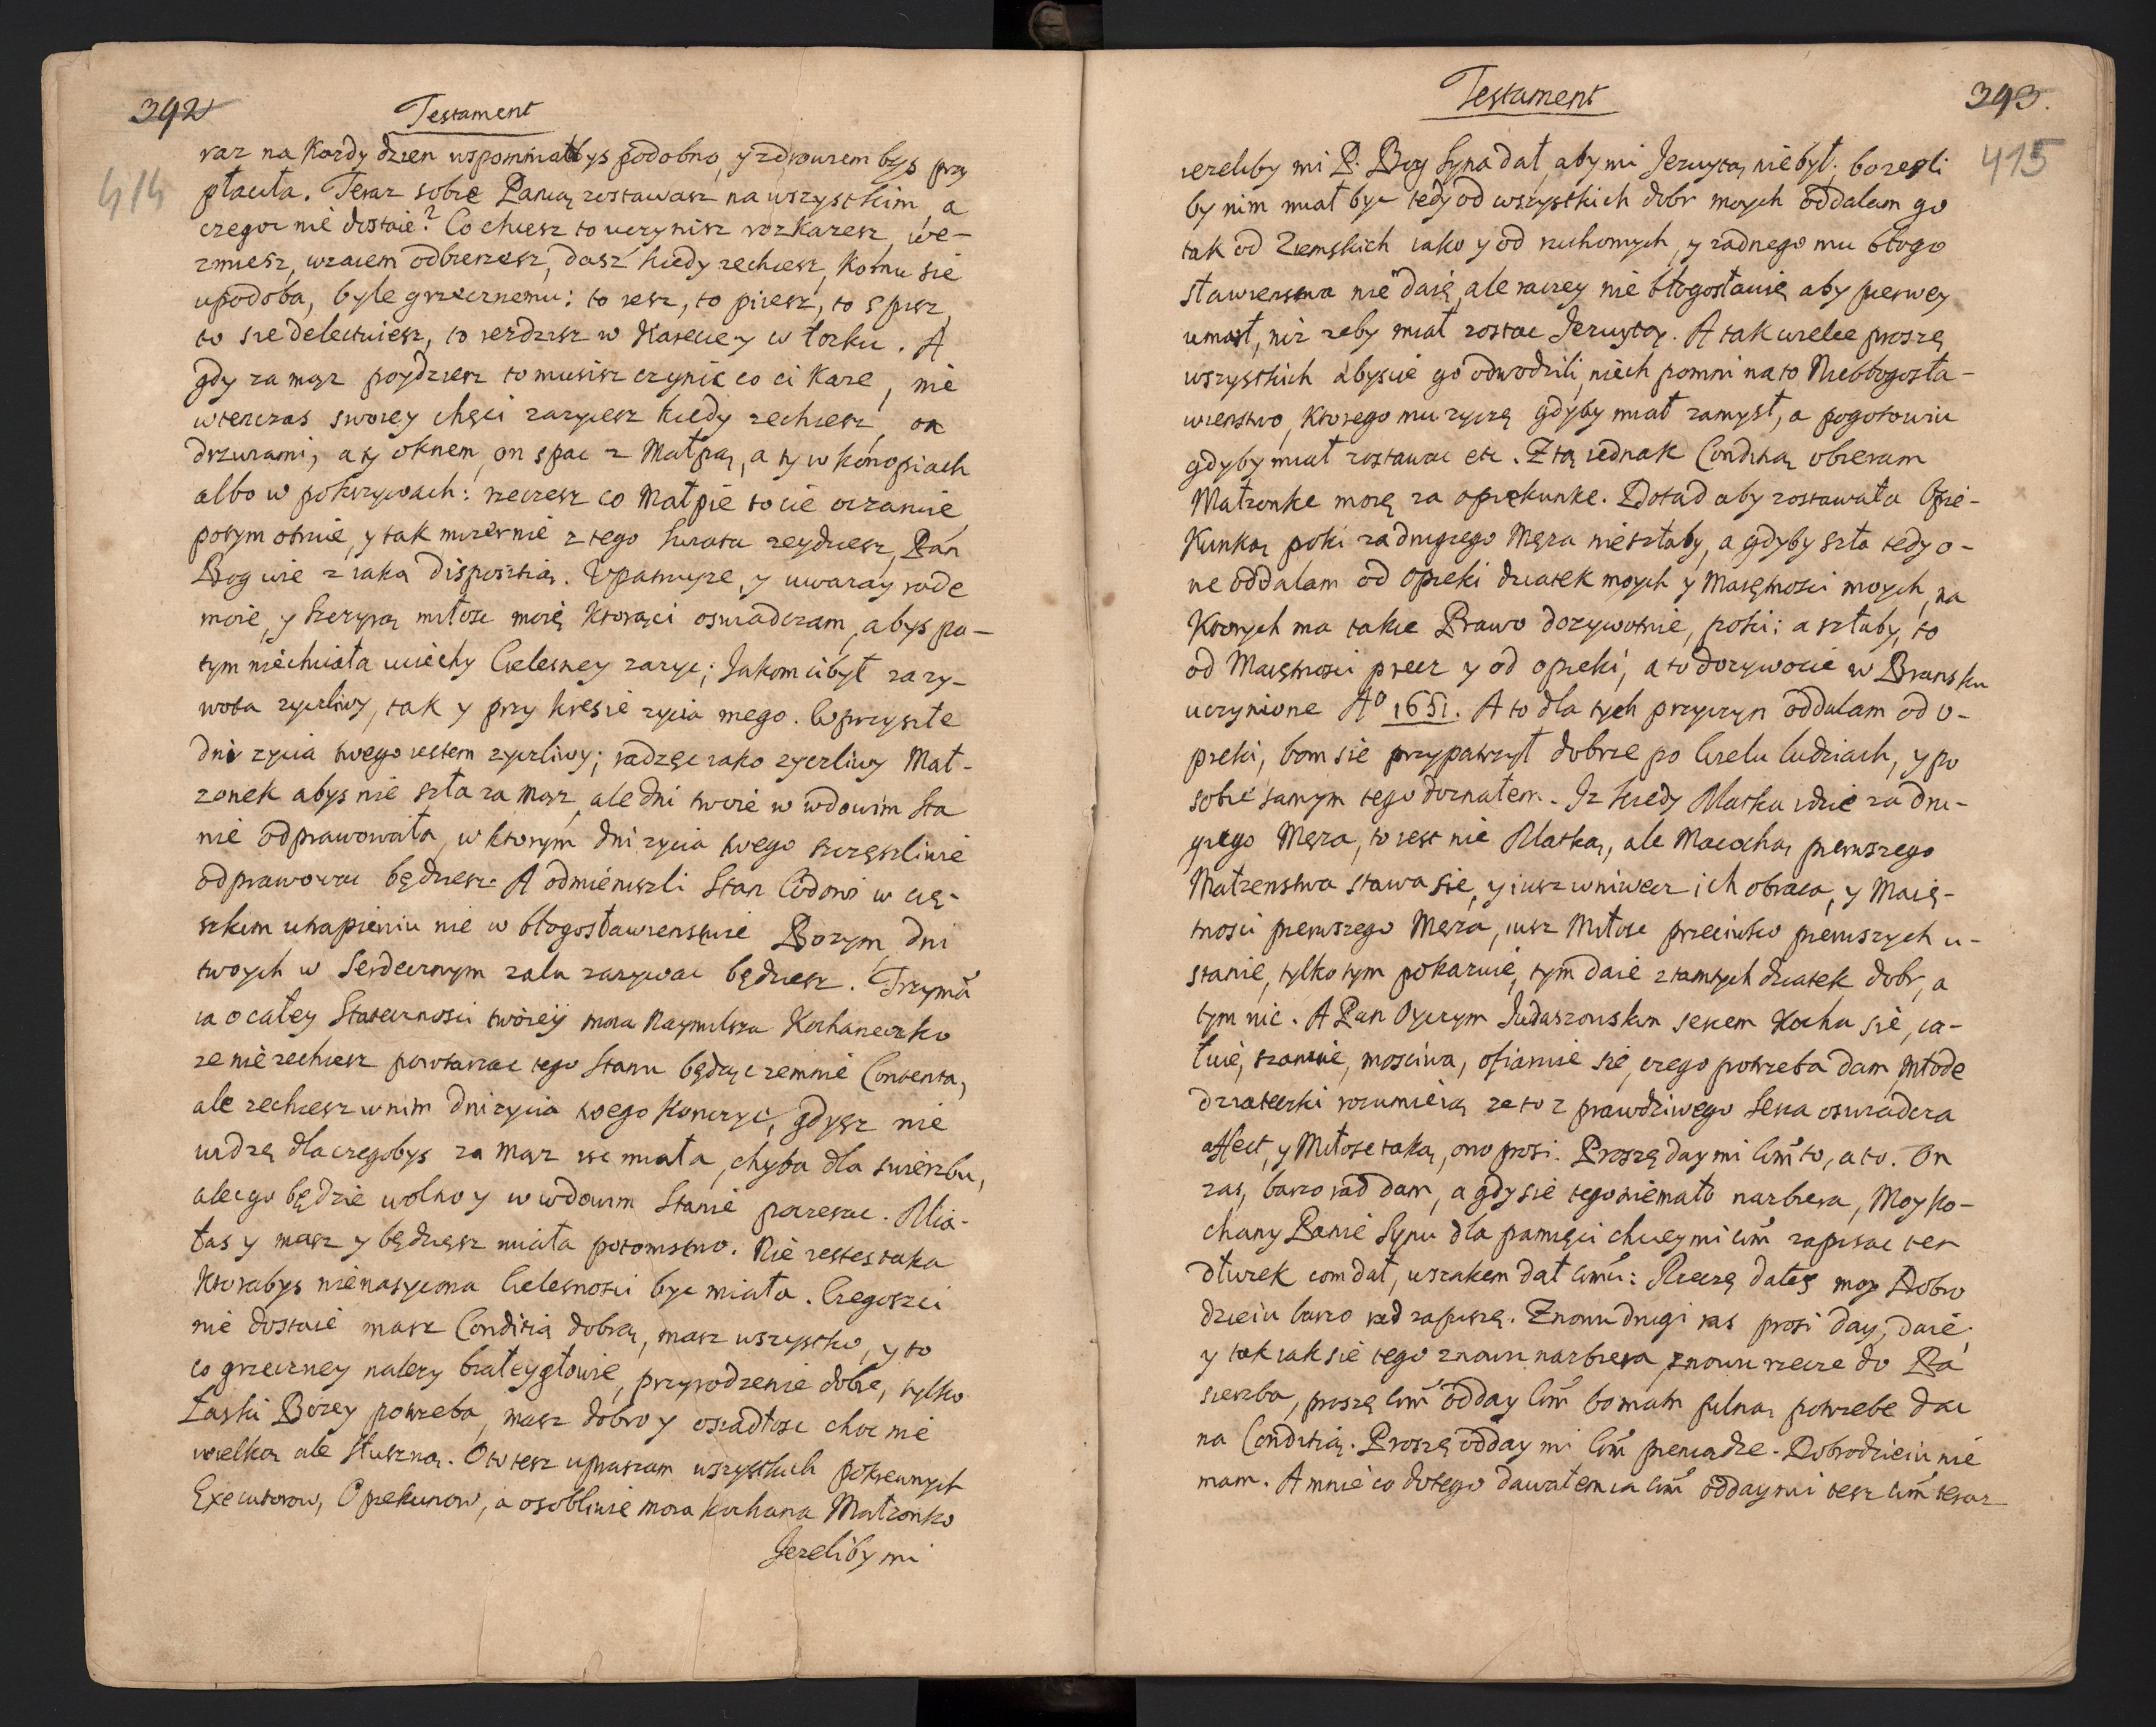 392
Testament
414
raz na Kozdy dzien wspominałbys podobno, y zdrowiem bys przy
płaciła. Teraz sobie Panią zostawasz na wszystkim, a
czegoc nie dostaie? Co chcesz to uczynisz rozkazesz, we-
zmiesz, wzaiem odbierzesz, dasz kiedy zechcesz, Komu sie
upodoba, byle grzecznemu: to iesz, to piiesz, to spisz,
to sie delectuiesz, to iezdzisz w Karecie y w łozku. A
gdy za mąz poydziesz to musisz czynic co ci Kaze, nie
wtenczas swoiey chęci zazyiesz kiedy zechcesz, on
drzwiami, a ty oknem, on spac z Małpą, a ty w konopiach
albo w pokrzywach: rzeczesz co Małpie to cie oczaruie
potym otruie, y tak mizernie z tego swiata zeydziesz, Pan
Bog wie z iaka dispositią. Upatruyze, y uwazay rade
moie, y szczyrą miłosc moię Ktorąci oswiadczam, abys po-
tym niechciała uciechy Cielesney zazyc; Jakom ci był za zy-
wota zyczliwy, tak y przy kresie zycia mego. W przyszłe
dni zycia twego iestem zyczliwy; radzęc iako zyczliwy Mał-
zonek abys nie szła za mąz, ale dni twoie w wdowim sta
nie odprawowała, w ktorym dni zycia twego szczęsliwie
odprawowac będziesz. A odmieniszli Stan Wdowi w cię-
szkim utrapieniu nie w błogosławienstwie Bozym, dni
twoych w Serdecznym zalu zazywac będziesz. Trzymā
ia o całey Statecznosci twoieÿ moia Naymilsza Kochaneczko
ze nie zechcesz powtarzac tego Stanu będąc zemnie Contenta,
ale zechcesz w nim dni zycia twego Konczyc, gdysz nie
widzę dla czegobys za mąz isc miała, chyba dla swierzbu,
alec go będzie wolno y w wdowim Stanie poczesac. Mia-
łas y masz y będziesz miała potomstwo. Nie iestes taka
Ktorabys nienasycona Cielesnosci byc miała. Czegoszci
nie dostaie masz Conditią dobrą, masz wszystko, y to
co grzeczney nalezy białeygłowie, przyrodzenie dobre, tylko
Łaski Bozey potrzeba, masz dobro y osiadłosc choc nie
wielką ale słuszną. Oto tesz upraszam wszystkich pokrewnych
Executorow, Opiekunow, a osobliwie moia kochana Małzonko
Jezeliby mi
Testament
393.
415
iezeliby mi P. Bog Syna dał, aby mi Jezuytą nie był. bo iezeli
by nim miał byc tedy od wszystkich dobr moych oddalam go
tak od Ziemskich iako y od ruchomych, y zadnego mu błogo
sławienstwa nie daię, ale raczey nie błogosławię aby pierwey
umarł, niz zeby miał zostac Jezuytą. A tak wielce proszę
wszystkich abyscie go odwodzili, niech pomni na to Niebłogosła-
wienstwo, Ktorego mu zyczę gdyby miał zamysł, a pogotowiu
gdyby miał zostawac etc. Z tą iednak Conditią obieram
Małzonke moię za opiekunke. Dotad aby zostawała Opie-
Kunką poki za drugiego Męza nie szłaby, a gdyby szła tedy o-
ne oddalam od opieki dziatek moych y Maiętnosci moych, na
Ktorych ma takie Prawo dozywotnie, poki: a szłaby, to
od Maiętnosci precz y od opieki, a to dozywocie w Bransku
uczynione Aº 1651. A to dla tych przyczyn oddalam od o-
pieki, bom sie przypatrzył dobrze po wielu ludziach, y po
sobie samym tego doznałem. Iz kiedy Matka idzie za dru-
giego Męza, to iest nie Matką, ale Macochą pierwszego
Małzenstwa stawa sie, y iusz wniwecz ich obraca, y Maię-
tnosci pierwszego Męza, iusz Miłosc przeciwko pierwszych u-
stanie, tylko tym pokazuie, tym daie z tamtych dziatek dobr, a
tym nic. A Pan Oyczym Judaszowskim sercem Kocha sie, ca-
łuie, szanuie, mosciwa, ofiaruie sie, czego potrzeba dam, Młode
dziateczki rozumieią ze to z prawdziwego serca oswiadcza
affect, y Miłosc taką, ono prosi. Proszę day mi Wm̃ to, a to. On
zas, barzo rad dam, a gdy sie tego niemało nazbiera, Moy ko-
chany Panie Synu dla pamięci chciey mi Wm̃ zapisac ten
dłuzek com dał, wszakem dał Wmci: Rzeczę dałes moy Dobro
dzieiu barzo rad zapiszę. Znowu drugi ras prosi day, daie
y tak iak sie tego znowu nazbiera, znowu rzecze do Pa
sierzba, proszę Wm̃ odday Wm̃ bo mam pilną potrzebe dac
na Conditią. Proszę odday mi Wm̃ pieniądze. Dobrodzieiu nie
mam. A mnie co do tego dawałem ia Wm̃ odday mi tesz Wm̃ teraz